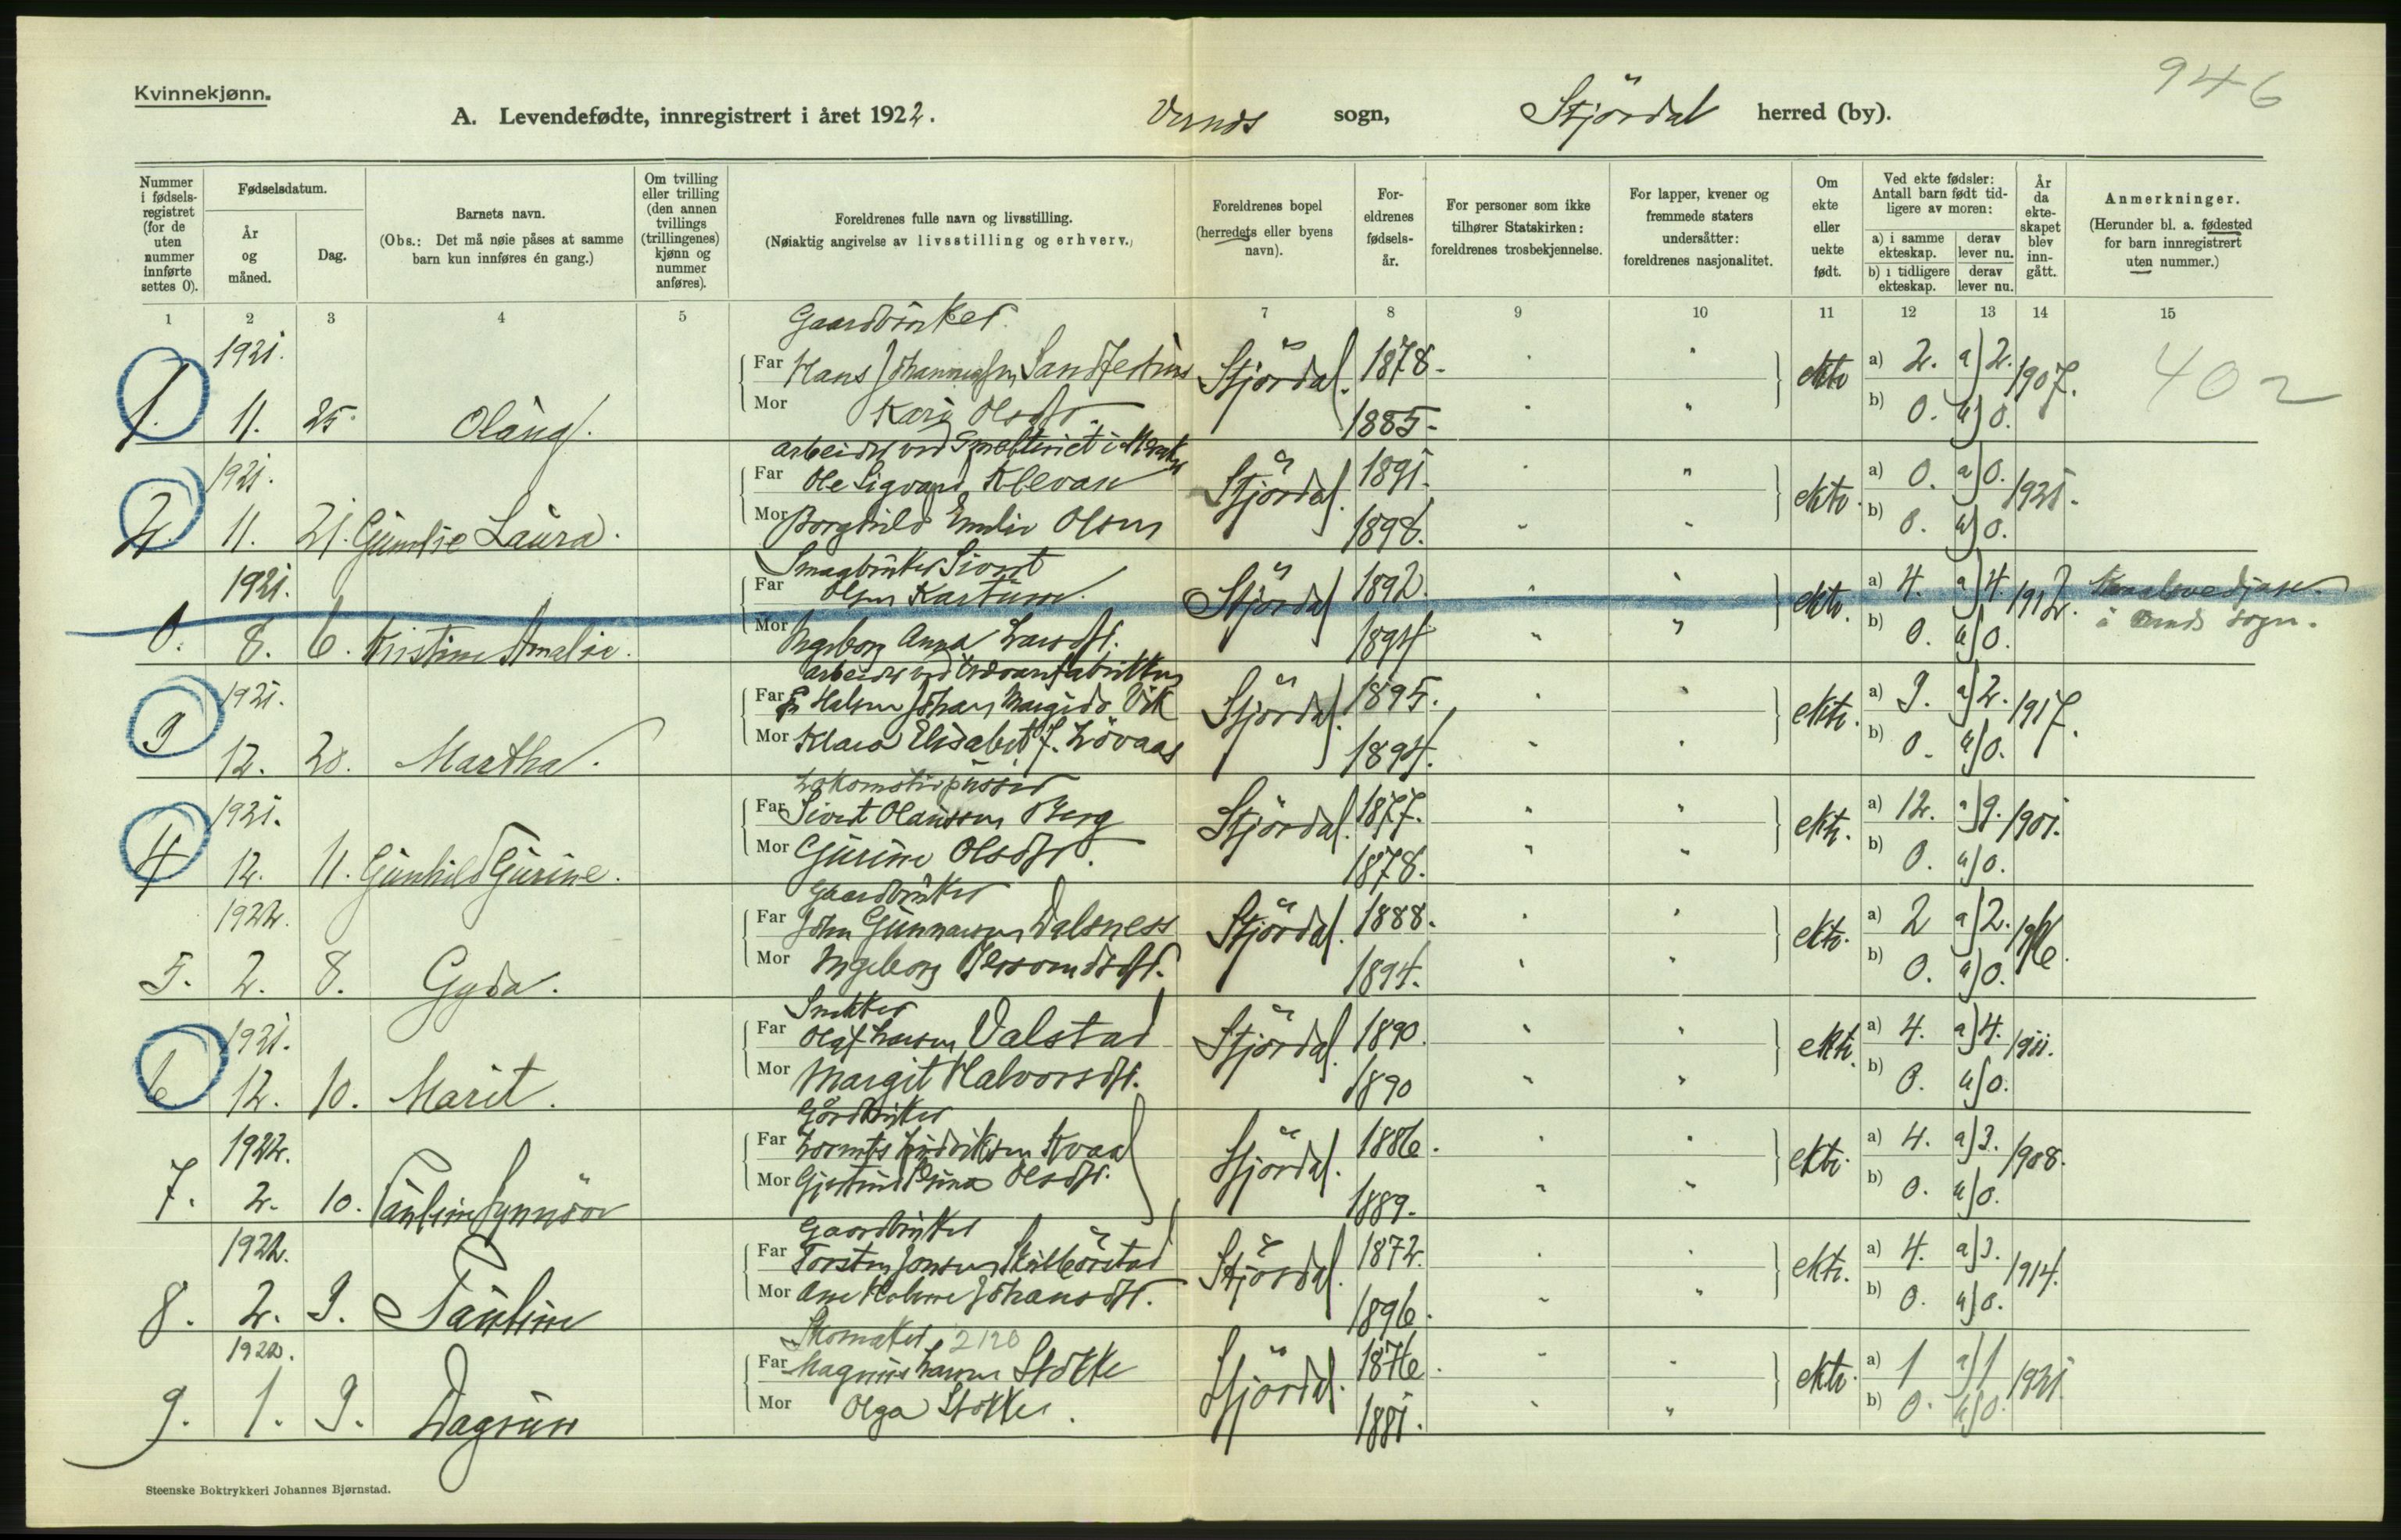 946
Kvinnekjønn.
A. Levendefødte, innregistrert i året 1922. sogn, Stjördal herred (by).
Nummer i fødsels-registret (for de uten nummer innførte settes 0).
Fødselsdatum.
År og måned.
Dag.
Barnets navn.
(Obs.: Det må nøie påses at samme barn kun innføres én gang.)
Om tvilling eller trilling (den annen tvillings (trillingenes) kjønn og nummer anføres).
Foreldrenes fulle navn og livsstilling.
(Nøiaktig angivelse av livsstilling og erhverv.)
Foreldrenes bopel (herredets eller byens navn).
For-eldrenes fødsels-år.
For personer som ikke tilhører Statskirken: foreldrenes trosbekjennelse.
For lapper, kvener og fremmede staters undersåtter: foreldrenes nasjonalitet.
Om ekte eller uekte født.
Ved ekte fødsler: Antall barn født tid-ligere av moren:
a) i samme ekteskap. derav lever nu.
b) i tidligere ekteskap. derav lever nu.
År da ekte-skapet blev inn-gått.
Anmerkninger.
(Herunder bl. a. fødested for barn innregistrert uten nummer.)
1 2 3 4 5 7 8 9 10 11 12 13 14 15
Gaardbruker
1921. Far Hans Johannessen Stjördal. 1878. ekte a) 2. a) 2. 1907. 402
1. 11. 25. Olaug. Mor Kari Olsdtr. 1885. b) 0. b) 0.
arbeider ved Smelteriet i Meraker
1921. Far Ole Sigvard Klevan Stjördal. 1891. ekte. a) 0. a) 0. 1921.
2. 11. 21. Laura. Mor Borghild Emilie Olsen 1898. b) 0. b) 0.
Smaabruker Sivert
1921. Far Olsen Stjördal 1892. ekte. a) 4. a) 4. 1912.
0. 8. 6. Kristine Amalie. Mor Ingeborg Anna Larsdtr. 1894 b) 0. b) 0. sogn.
arbeider ved
1921. Far Johan Vik Stjördal. 1895. ekte. a) 3. a) 2. 1917.
3 12. 28. Martha. Mor Klara Elisabet J. Lövaas 1894. b) 0. b) 0.
Lokomotivpusser
1921. Far Sivert Olausson Berg Stjördal. 1877. ekte. a) 12. a) 9. 1901.
4 12. 11. Gunhild Gurine. Mor Gurine Olsdtr. 1878. b) 0. b) 0.
Gaardbruker
1922. Far John Gunnarson Dalsness Stjördal. 1888. ekte. a) 2 a) 2. 1916.
5. 2. 8. Gyda. Mor Ingeborg 1894. b) 0. b) 0.
Snekker
1921. Far Olaf Larsen Valstad Stjördal. 1890. ekte. a) 4. a) 4. 1911.
6 12. 10. Marit. Mor Margit Halvorsdtr. 1890 b) 0. b) 0.
Gårdbruker
1922. Far Kvaal Stjördal. 1886. ekte. a) 4. a) 3. 1908.
7. 2. 10. Pauline Synnöve Mor Olsdtr. 1889. b) 0. b) 0.
Gaardbruker
1922. Far Torsten Jonsen Stjördal. 1872. ekte. a) 4. a) 3. 1914.
8. 2. 3. Pauline Mor Johansdtr. 1896. b) 0. b) 0.
Skomaker. 2120
1922. Far Magnus Larsen Stokke Stjördal. 1876. ekte. a) 1 a) 1 1921
9. 1. 3. Dagrun Mor Olga Stokke. 1881. b) 0. b) 0.
Steenske Boktrykkeri Johannes Bjørnstad.